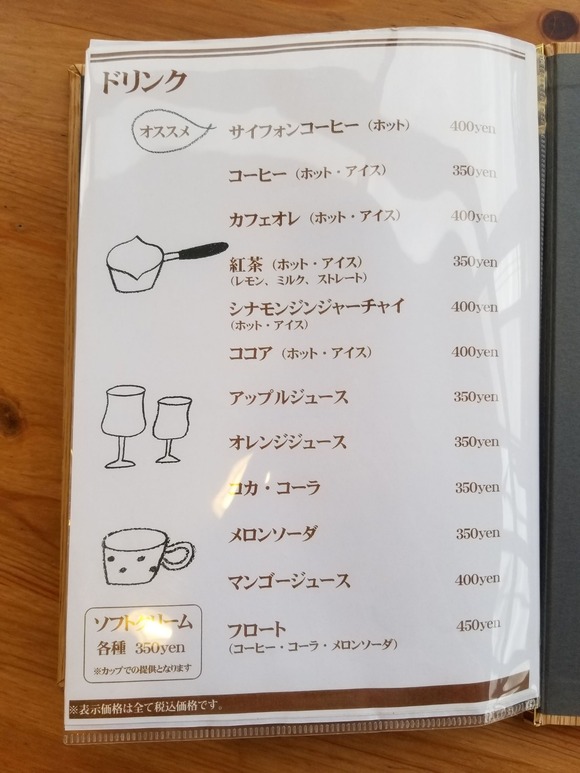 ドリンク
オススメ サイフォンコーヒー（ホット） 400yen
コーヒー（ホット・アイス） 350yen
カフェオレ（ホット・アイス） 400yen
紅茶（ホット・アイス） 350yen
（レモン、ミルク、ストレート）
シナモンジンジャーチャイ 400yen
（ホット・アイス）
ココア（ホット・アイス） 400yen
アップルジュース 350yen
オレンジジュース 350yen
コカ・コーラ 350yen
メロンソーダ 350yen
マンゴージュース 400yen
フロート 450yen
（コーヒー・コーラ・メロンソーダ）
ソフトクリーム
各種 350yen
※カップでの提供となります
※表示価格は全て税込価格です。